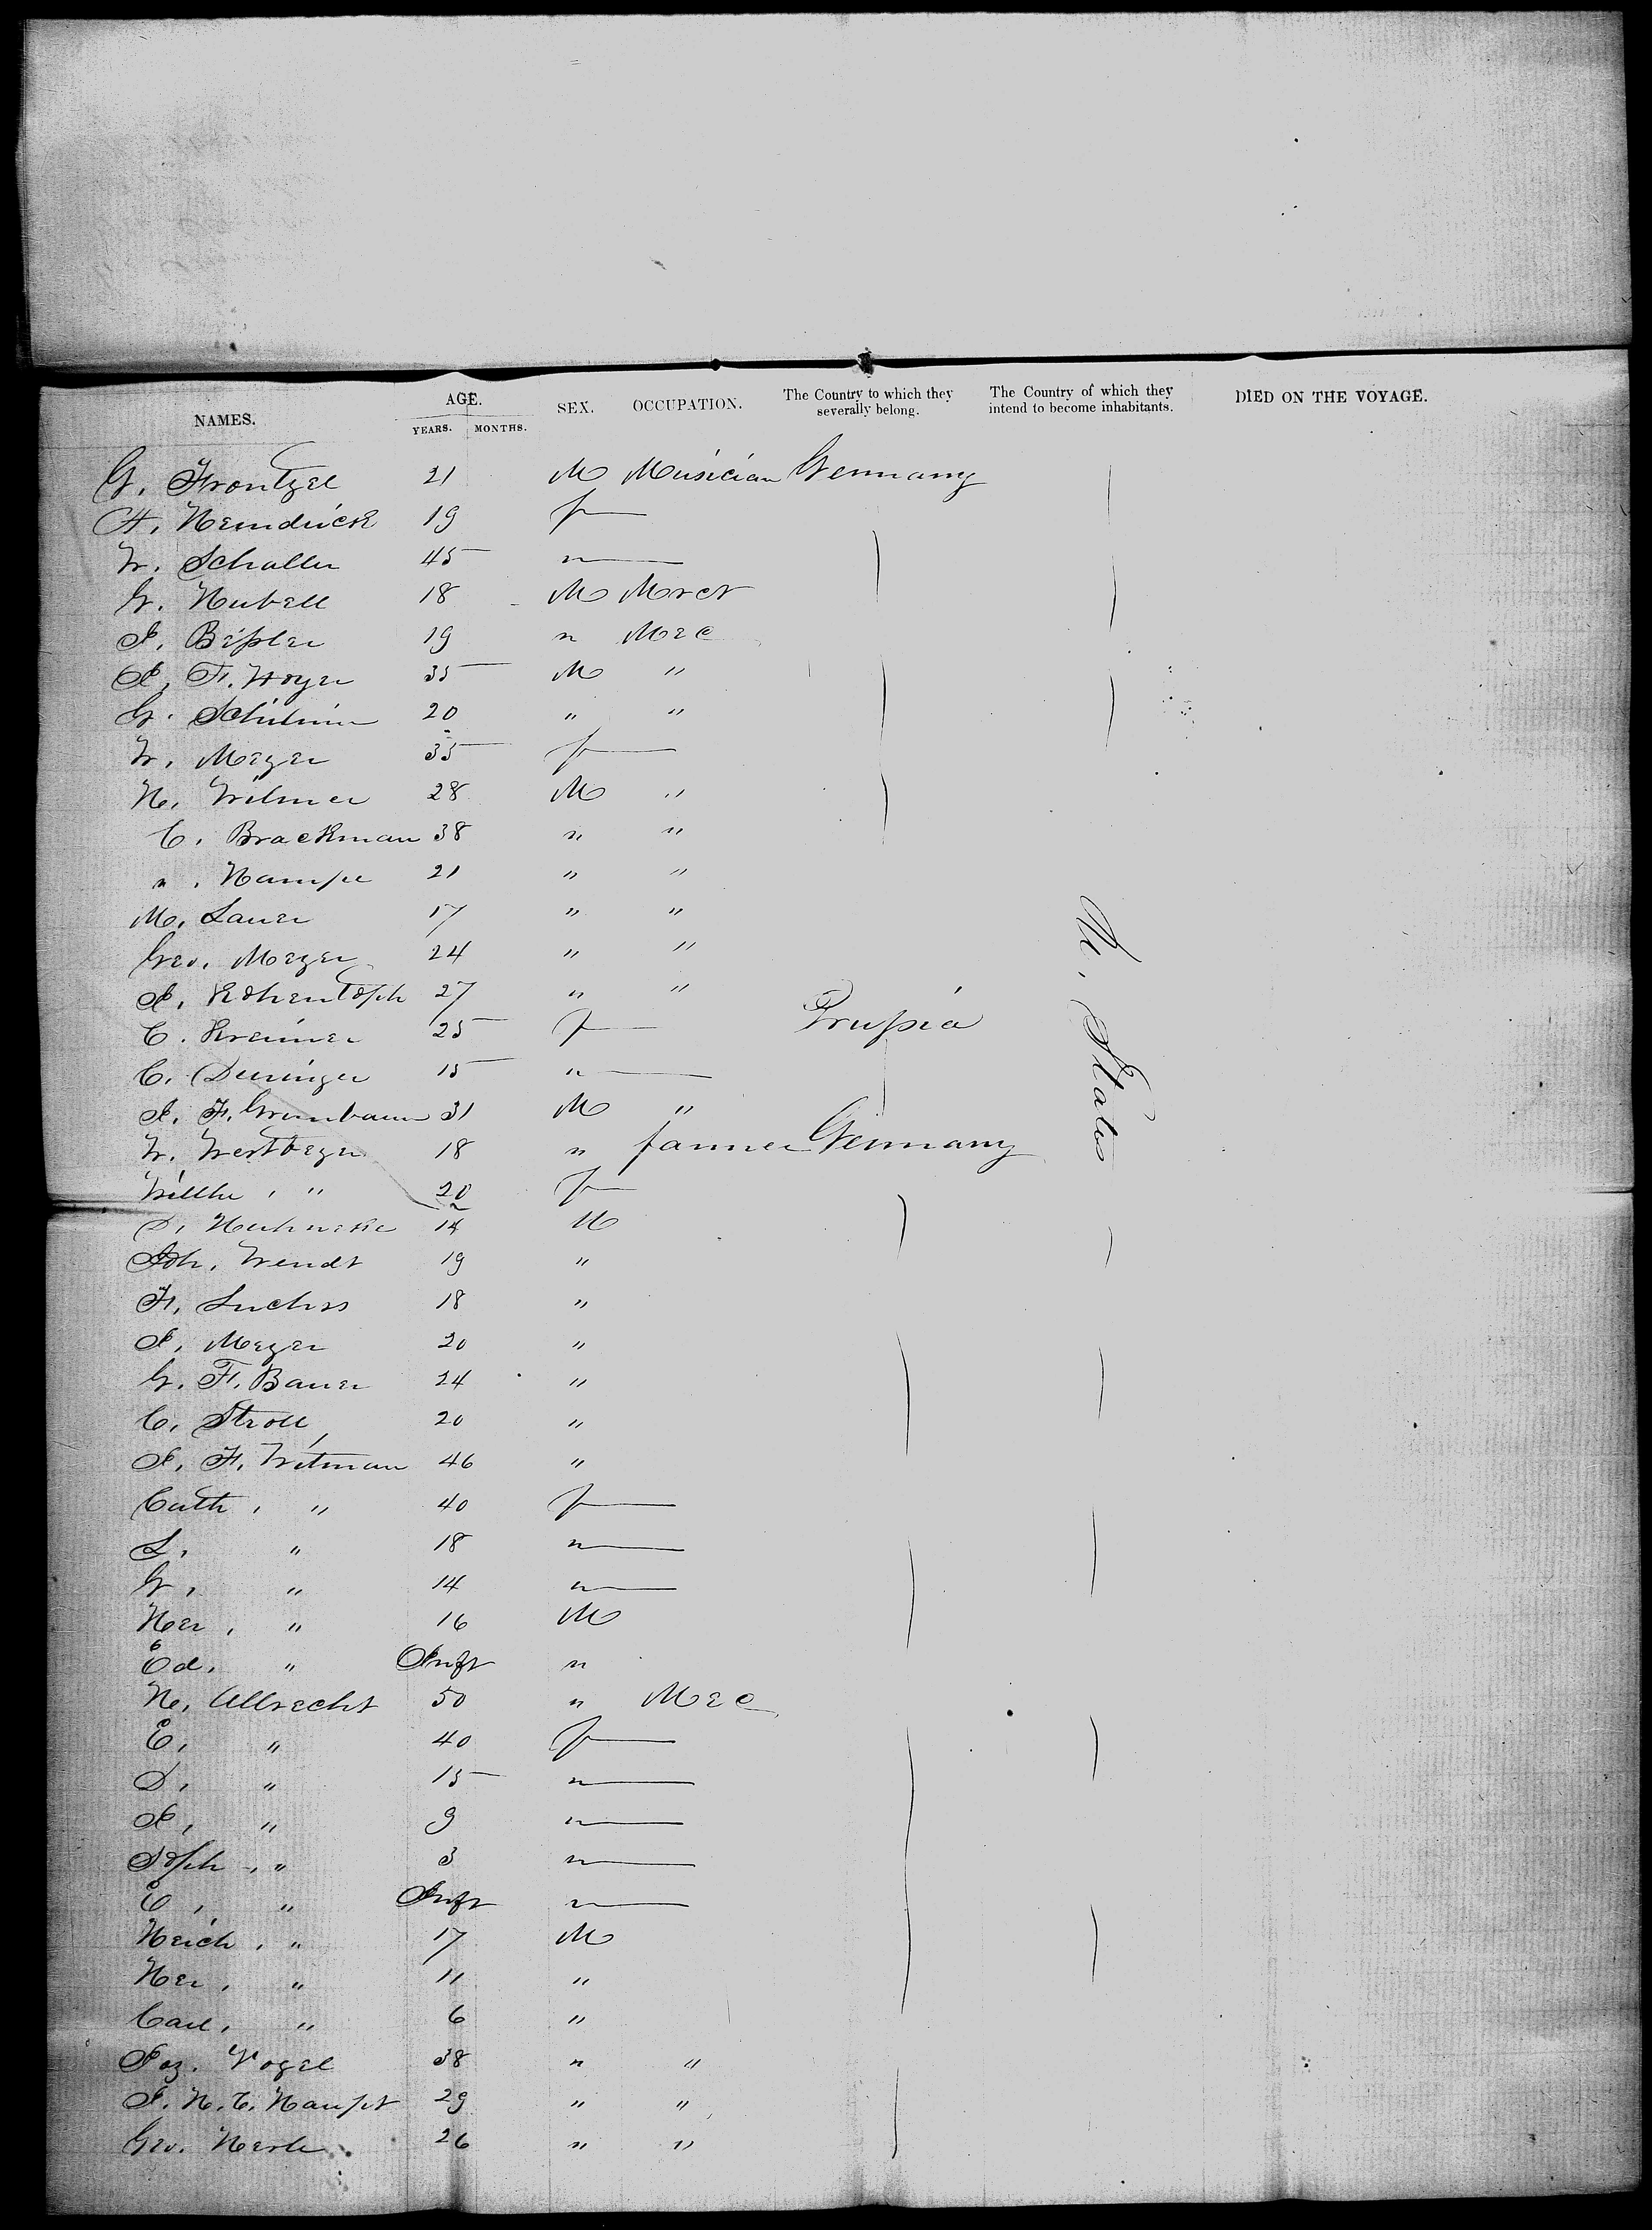 NAMES. AGE. SEX. OCCUPATION. The Country to which they severally belong. The Country of which they intend to become inhabitants. DIED ON THE VOYAGE.
YEARS. MONTHS.
G. Frontzel 21 M Musician Germany
H. Hendrick 19 f
W. Schaller 45 "
G. Hubell 18 M Mrct
J. Beßler 19 " Mec
J. F. Hoyer 35 M "
G. 20 " "
W. Meyer 35 f
H. Wilmer 28 M "
C. Brackman 38 " "
" . Hampe 21 " "
M. Lauer 17 " "
Geo. Meyer 24 " "
J. 27 " "
C. Kreimer 25 f Prußia
C. Deringer 15 "
J. F. Grunbaum 31 M "
W. Westbeger 18 " farmer Germany
Willhe , " 20 f
D. 14 M
Joh. Wendt 19 "
F. Luchss 18 "
J. Meyer 20 "
G. F. Bauer 24 "
C. Stroll 20 "
J. F. Witman 46 "
Cath , " 40 f
L. " 18 "
G. " 14 "
Her , " 16 M
Ed. " Inft "
H. Albrecht 50 " Mec
E. " 40 f
D. " 15 "
J. " 9 "
Soph , " 3 "
C , " Inft "
Heich , " 17 M
Her , " 11 "
Carl , " 6 "
Joz. Vogel 38 " "
J. H. C. Haupt 29 " "
Geo. Herle 26 " "
U. States